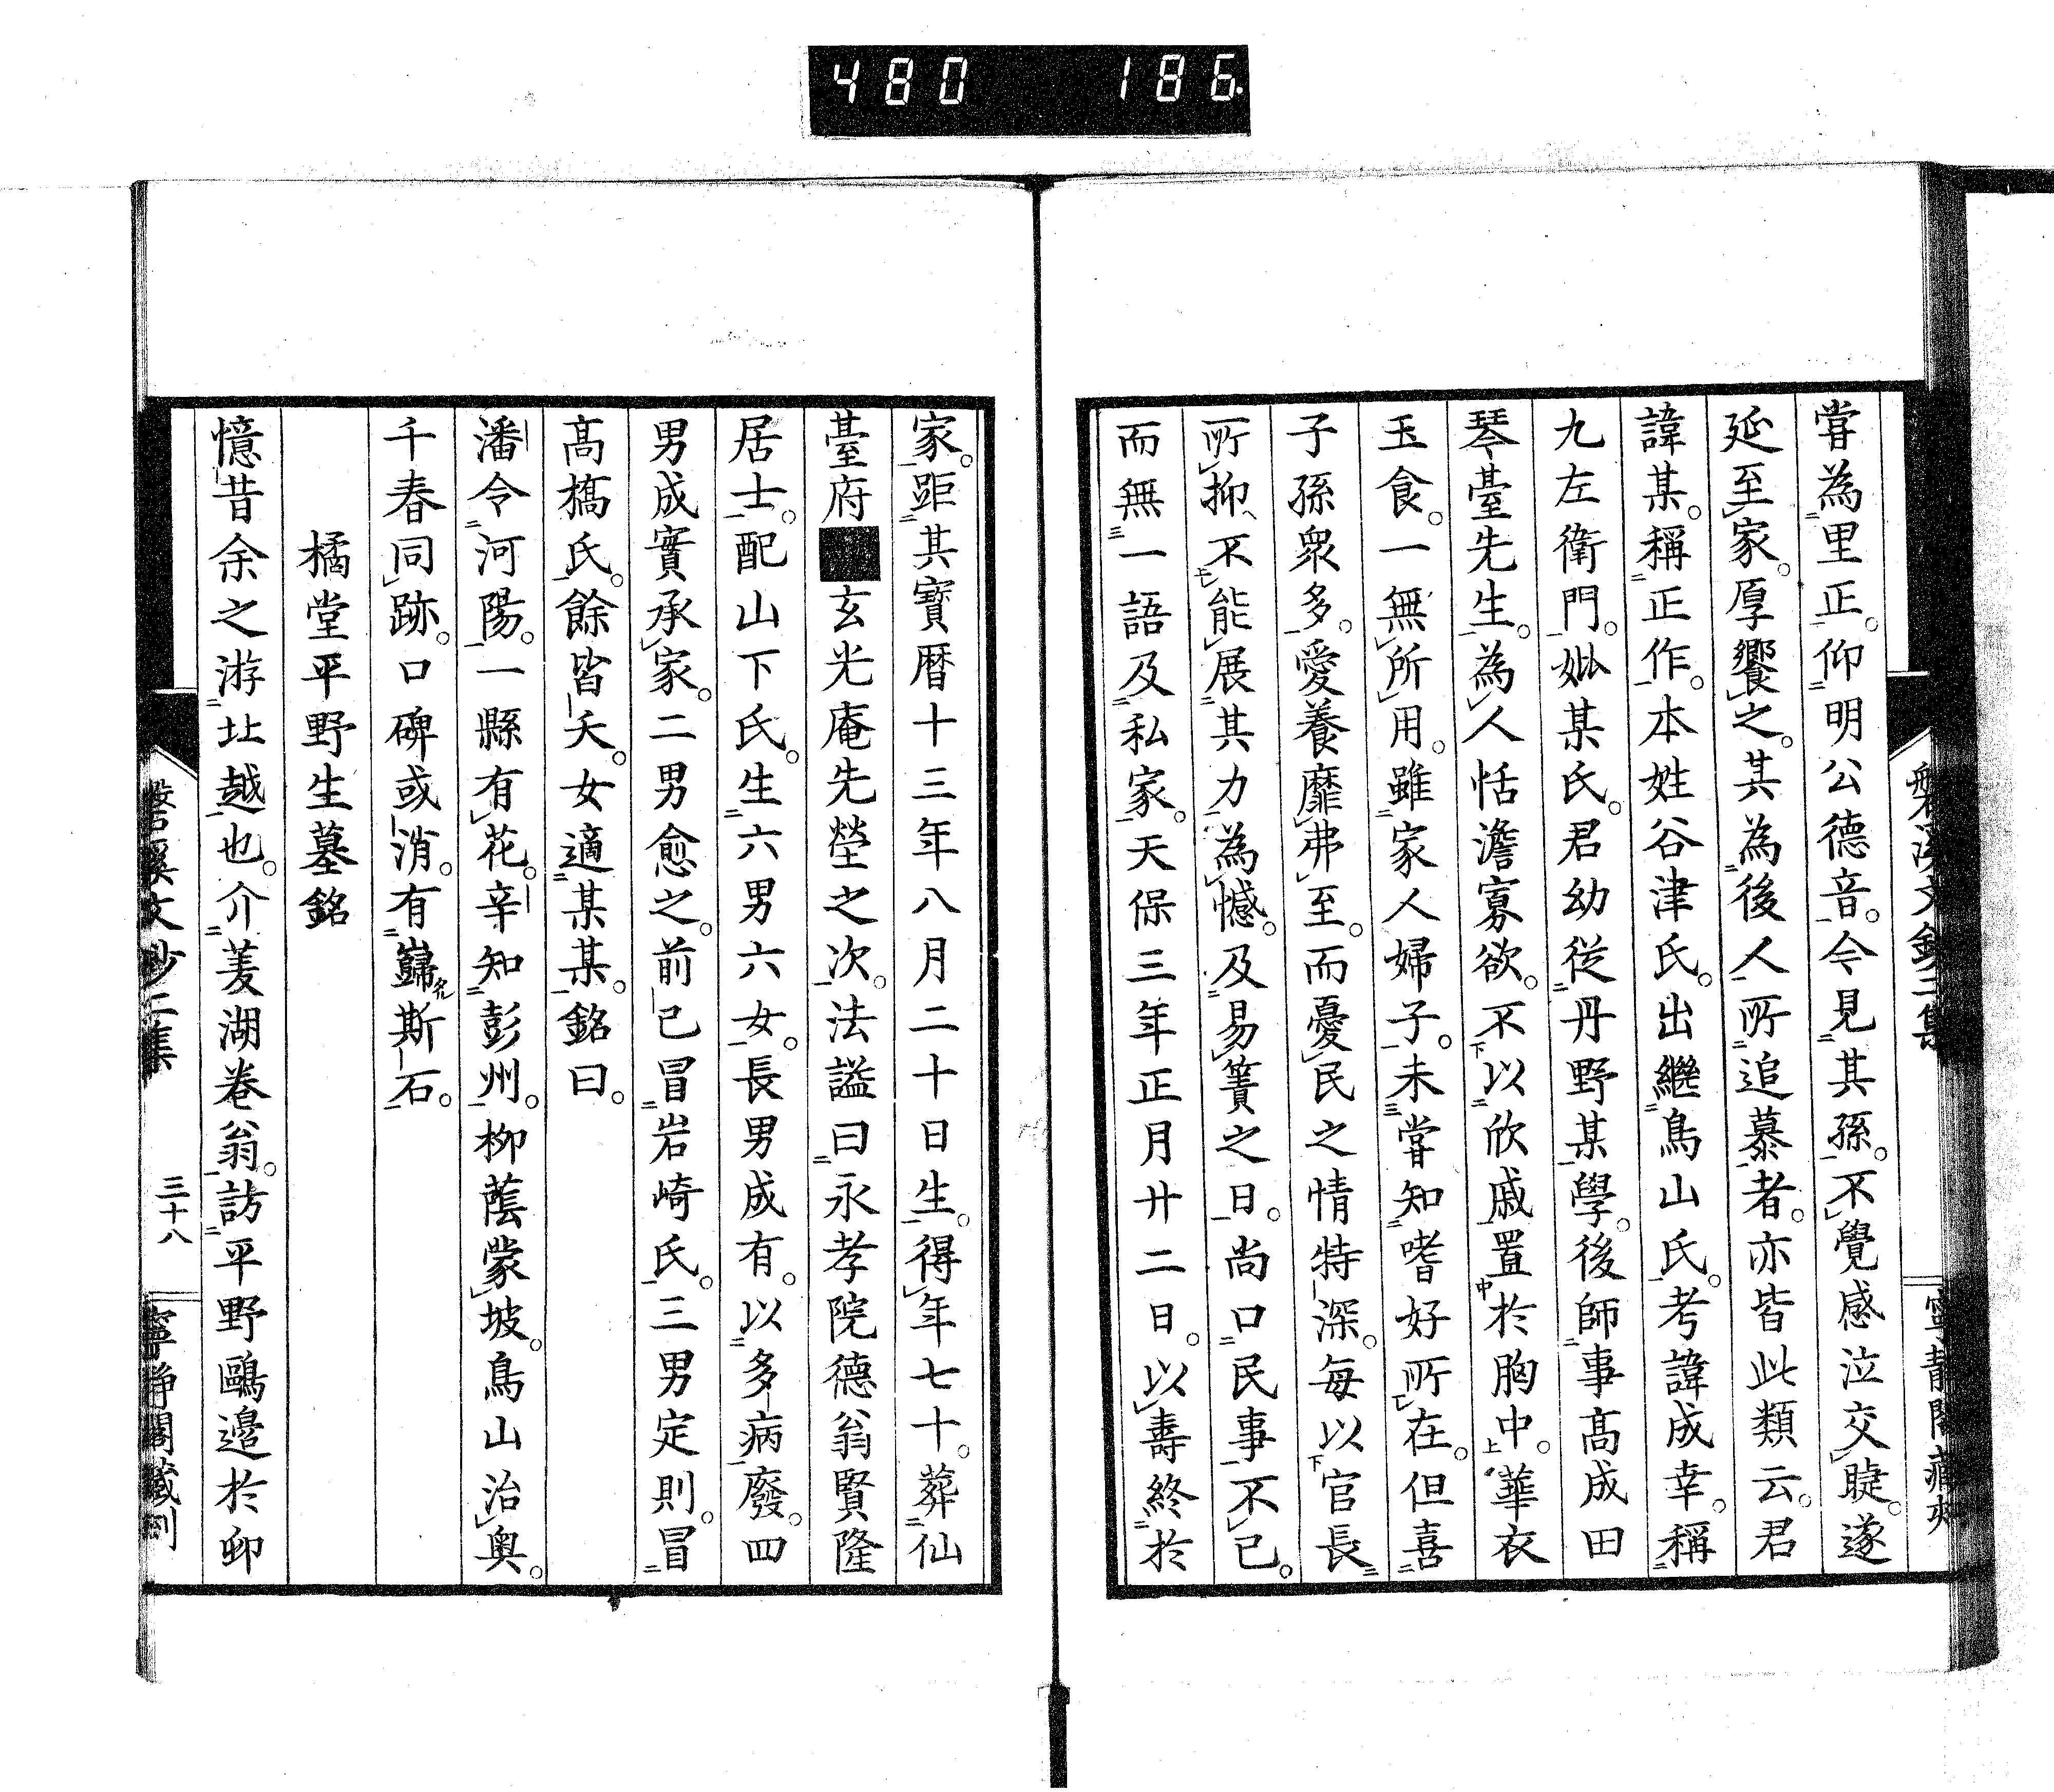 480 186
嘗為里正。仰明公德音。今見其孫。不覺感泣交睫。遂
延至家。厚饗之。其為後人所追慕者。亦皆此類云。君
諱某。稱正作。本姓谷津氏。出繼鳥山氏。考諱成幸。稱
九左衛門。妣某氏。君幼從丹野某學。後師事髙成田
琴臺先生。為人恬澹寡欲。不以欣戚置於胸中。華衣
玉食。一無所用。雖家人婦子。未嘗知嗜好所在。但喜
子孫衆多。愛養靡弗至。而憂民之情特深。每以官長
所抑、不能展其力為憾。及易簀之日。尚口民事不已。
而無一語及私家。天保三年正月廿二日。以壽終於
家。距其寶暦十三年八月二十日生。得年七十。葬仙
臺府■玄光庵先塋之次。法謚曰永孝院德翁賢隆
居士。配山下氏。生六男六女。長男成有。以多病廢。四
男成實承家。二男愈之。前已冒岩崎氏。三男定則。冒
髙橋氏。餘皆夭。女適某某。銘曰。
潘令河陽。一縣有花。辛知彭州。柳蔭蒙坡。鳥山治奥。
千春同跡。口碑或消。有巋斯石。
橘堂平野生墓銘
憶昔余之游北越也。介菱湖卷翁。訪平野鷗邊於卯
三十八